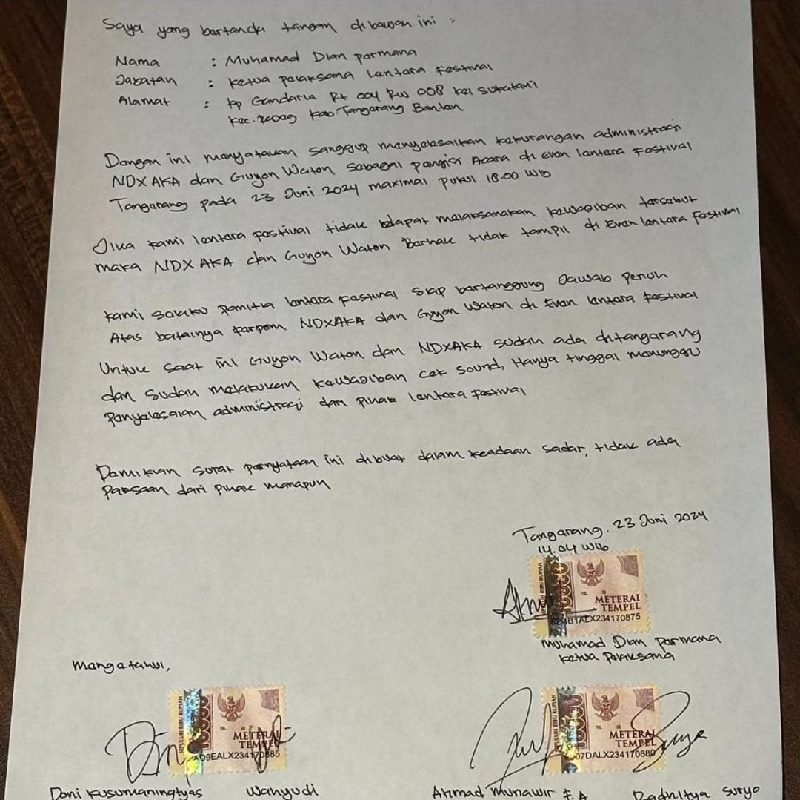 Saya yang bertanda tangan dibawah ini :
Nama : Muhamad Dian Permana
Jabatan : Ketua Pelaksana Lentara Festival
Alamat : Kp Gandaria Rt 004 Rw 008 Kel Sukatani
Kec. Kab Tangerang Banten
Dengan ini menyatakan sanggup menyelesaikan kekurangan administrasi
NDXAKA dan Guyon Waton sebagai pengisi Acara di Even lentara Festival
Tangerang pada 23 Juni 2024 maximal pukul 18.00 WIB
Jika kami lentara festival tidak dapat melaksanakan kewajiban tersebut
maka NDX AKA dan Guyon Waton Berhak tidak tampil di Even lentara Festival
Kami selaku panitia lentara festival siap bertanggung Jawab penuh
Atas batalnya perform NDXAKA dan Guyon Waton di Even lentara Festival
Untuk saat ini Guyon Waton dan NDXAKA sudah ada ditangerang
dan sudah melakukan kewajiban cek sound, Hanya tinggal menunggu
Penyelesaian administrasi dari pihak lentara Festival
Demikian surat pernyataan ini dibuat dalam keadaan sadar, tidak ada
Paksaan dari pihak manapun
Tangerang, 23 Juni 2024
14.04 WIB
10000
METERAI
TEMPEL
Muhamad Dian Permana
Ketua Pelaksana
Mengetahui,
10000
METERAI
TEMPEL
10000
METERAI
TEMPEL
Doni Kusumaningtyas Wahyudi Ahmad Munawir Radhitya Suryo